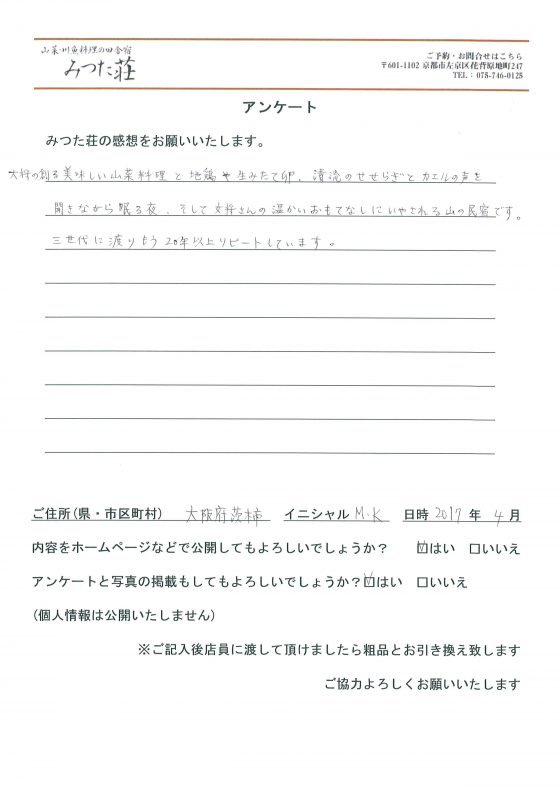 山菜・川魚料理の田舎宿
みつた荘
ご予約・お問合せはこちら
〒601-1102 京都市左京区花背原地町247
TEL：075-746-0125
アンケート
みつた荘の感想をお願いいたします。
大将の創る美味しい山菜料理と地鶏や生みたて卵、清流のせせらぎとカエルの声を
聞きながら眠る夜、そして女将さんの温かいおもてなしにいやされる山の民宿です。
三世代に渡りもう20年以上リピートしています。
ご住所(県・市区町村) 大阪府茨木市 イニシャル M・K 日時 2017 年 4 月
内容をホームページなどで公開してもよろしいでしょうか？ ☑はい □いいえ
アンケートと写真の掲載もしてもよろしいでしょうか？☑はい □いいえ
(個人情報は公開いたしません)
※ご記入後店員に渡して頂けましたら粗品とお引き換え致します
ご協力よろしくお願いいたします